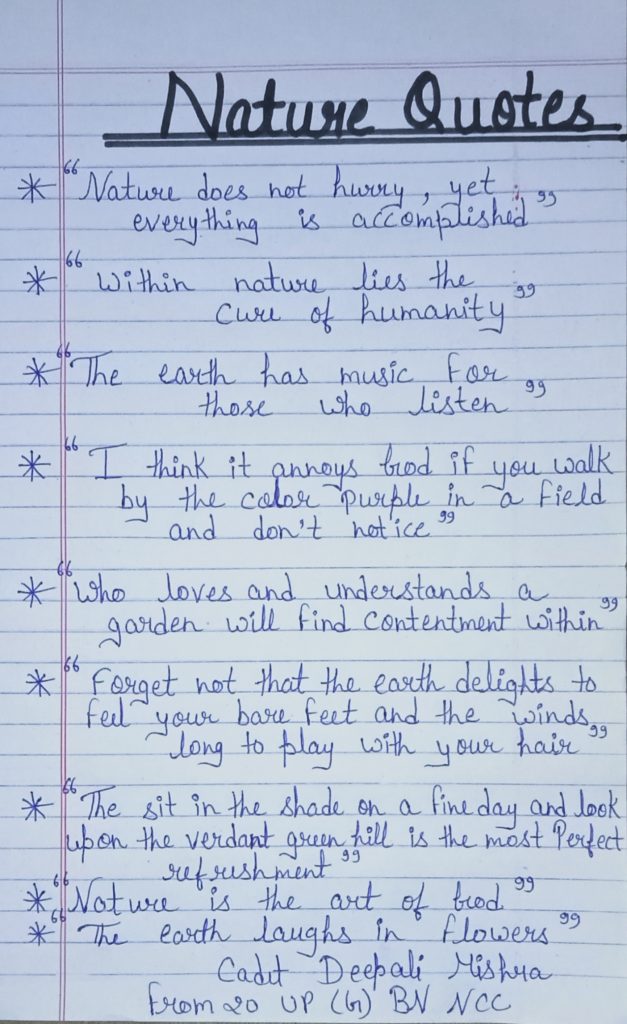 Nature Quotes
* "Nature does not hurry, yet
everything is accomplished"
* "Within nature lies the
cure of humanity"
* "The earth has music for
those who listen"
* "I think it annoys God if you walk
by the color purple in a field
and don't notice"
* "Who loves and understands a
garden will find contentment within"
* "Forget not that the earth delights to
feel your bare feet and the winds
long to play with your hair"
* "The sit in the shade on a fine day and look
upon the verdant green hill is the most Perfect
refreshment"
* "Nature is the art of God"
* "The earth laughs in flowers"
Cadet Deepali Mishra
From 20 UP (G) BN NCC